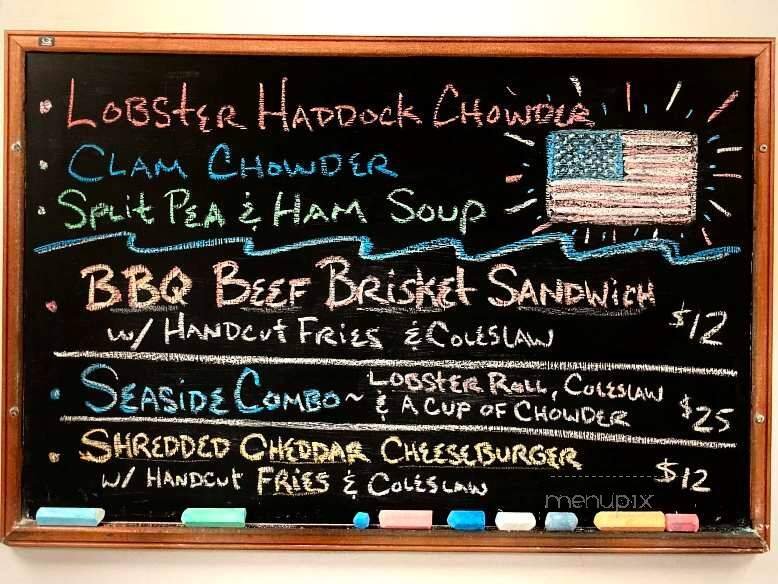 • LOBSTER HADDOCK CHOWDER
• CLAM CHOWDER
• SPLIT PEA & HAM SOUP
• BBQ BEEF BRISKET SANDWICH
W/ HANDCUT FRIES & COLESLAW $12
• SEASIDE COMBO ~ LOBSTER ROLL, COLESLAW
& A CUP OF CHOWDER $25
• SHREDDED CHEDDAR CHEESEBURGER
W/ HANDCUT FRIES & COLESLAW $12
menupix